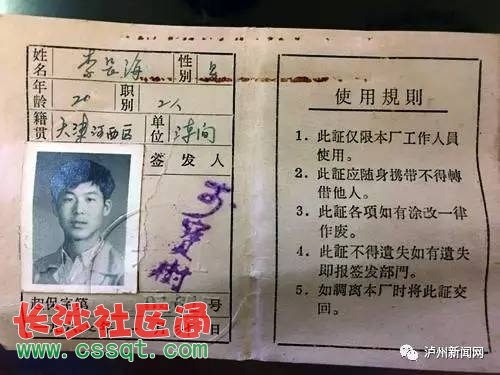 姓名 李长海 性别 男
年龄 20 职别 工人
籍贯 天津河西区 单位 津南
签发人
使用規則
1. 此証仅限本厂工作人員
使用。
2. 此証应随身携带不得轉
借他人。
3. 此証各項如有涂改一律
作废。
4. 此証不得遗失如有遗失
即报签发部門。
5. 如調离本厂时将此証交
回。
字第
号
日
长沙社区通
www.cssqt.com
泸州新闻网